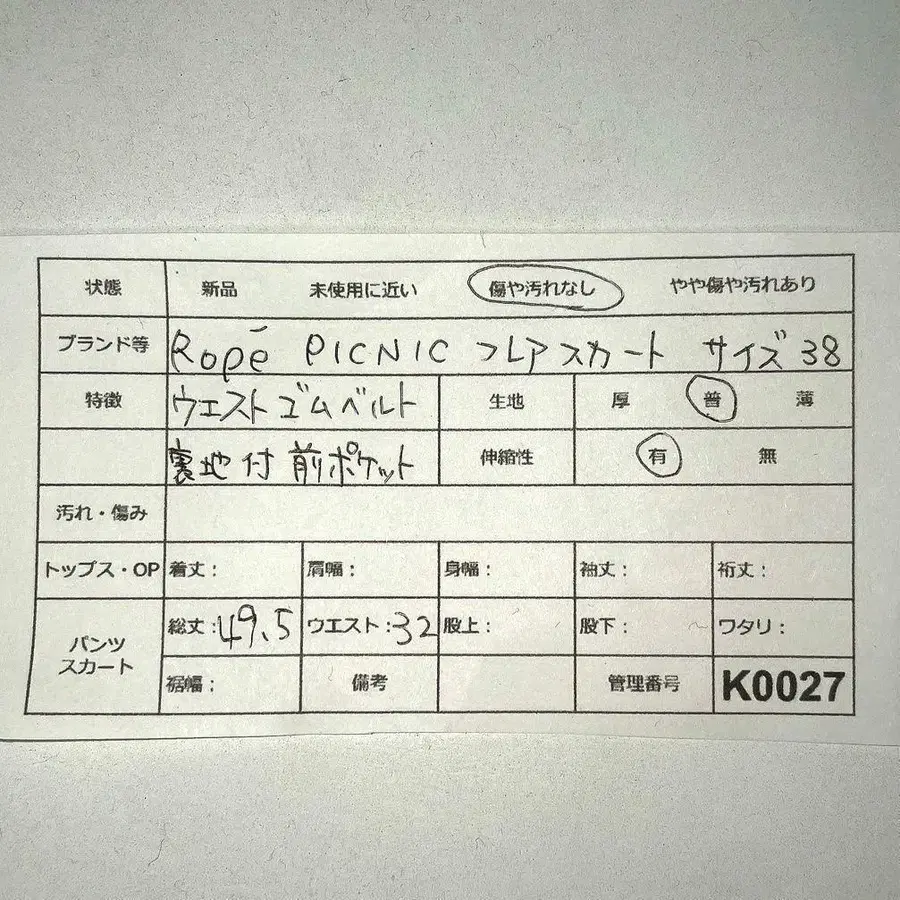 状態 新品 未使用に近い 傷や汚れなし やや傷や汚れあり
ブランド等 Ropé PICNIC フレアスカート サイズ38
特徴 ウエストゴムベルト 生地 厚 普 薄
裏地付 前ポケット 伸縮性 有 無
汚れ・傷み
トップス・OP 着丈： 肩幅： 身幅： 袖丈： 裄丈：
パンツ スカート 総丈：49.5 ウエスト：32 股上： 股下： ワタリ：
裾幅： 備考 管理番号 K0027